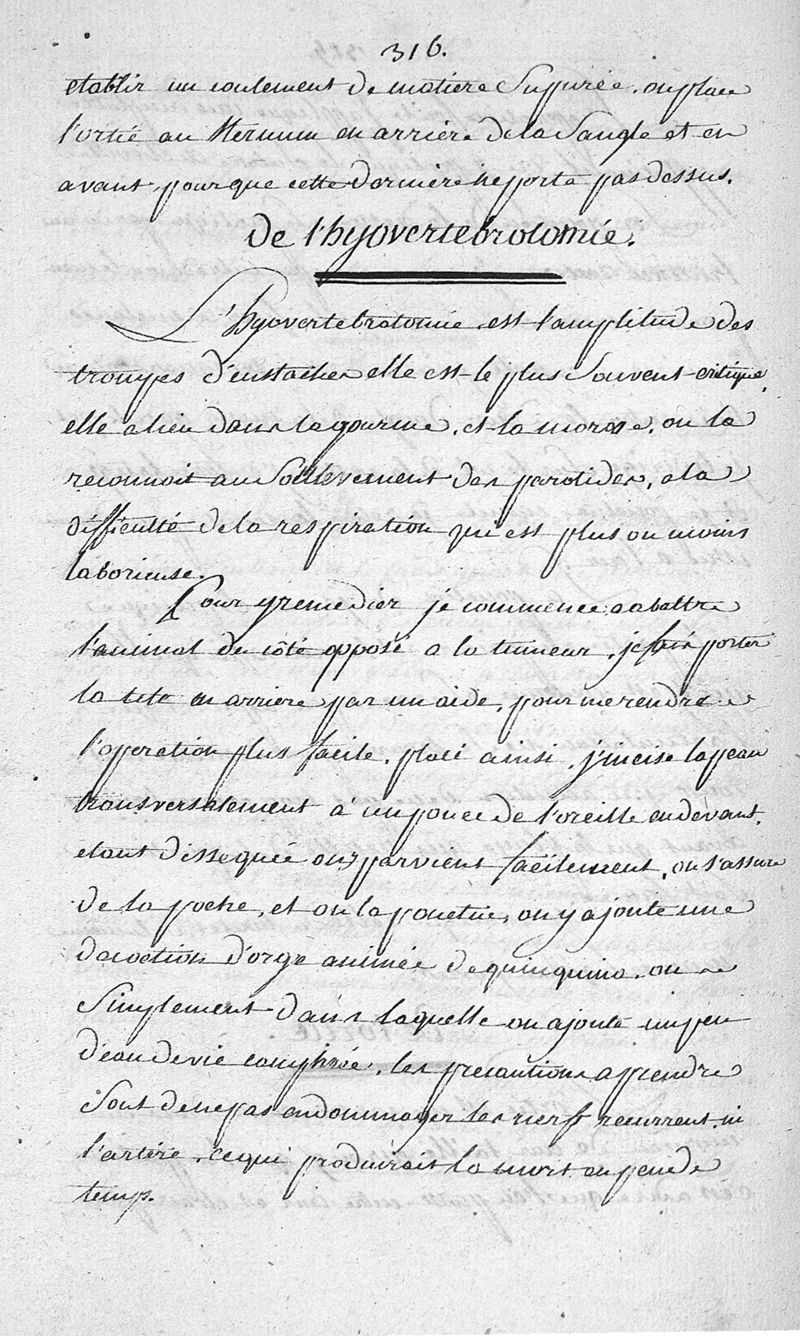 316.
etablir un coulement de matiere Suppurée, on place
l'ortie au Sternum en arriere de la Sangle et en
avant, pour que cette derniere ne porte pas dessus.
De l'hyovertebrotomie.
L'hyovertebrotomie est l'amplitude des
trompes d'eustaches elle est le plus Souvent critique,
elle a lieu dans la gourme, et la morve, on la
reconnoit au Soulevement des parotides, a la
difficulté de la respiration qui est plus ou moins
laborieuse.
Pour y remedier je commence a abattre
l'animal du côté opposé a la tumeur, je fais porter
la tete en arriere par un aide, pour me rendre
l'operation plus facile, placé ainsi, j'incise la peau
transversalement a un pouce de l'oreille en devant,
etant dissequée on y parvient facilement, on s'assure
de la poche, et on la ponctue, on y ajoute une
decoction d'orge animée de quinquina, ou
Simplement dans laquelle on ajoute un peu
d'eau de vie camphrée, les precautions a prendre
Sont de ne pas endommager les nerfs recurrent, ni
l'artere, ce qui produirait la mort en peu de
temp.